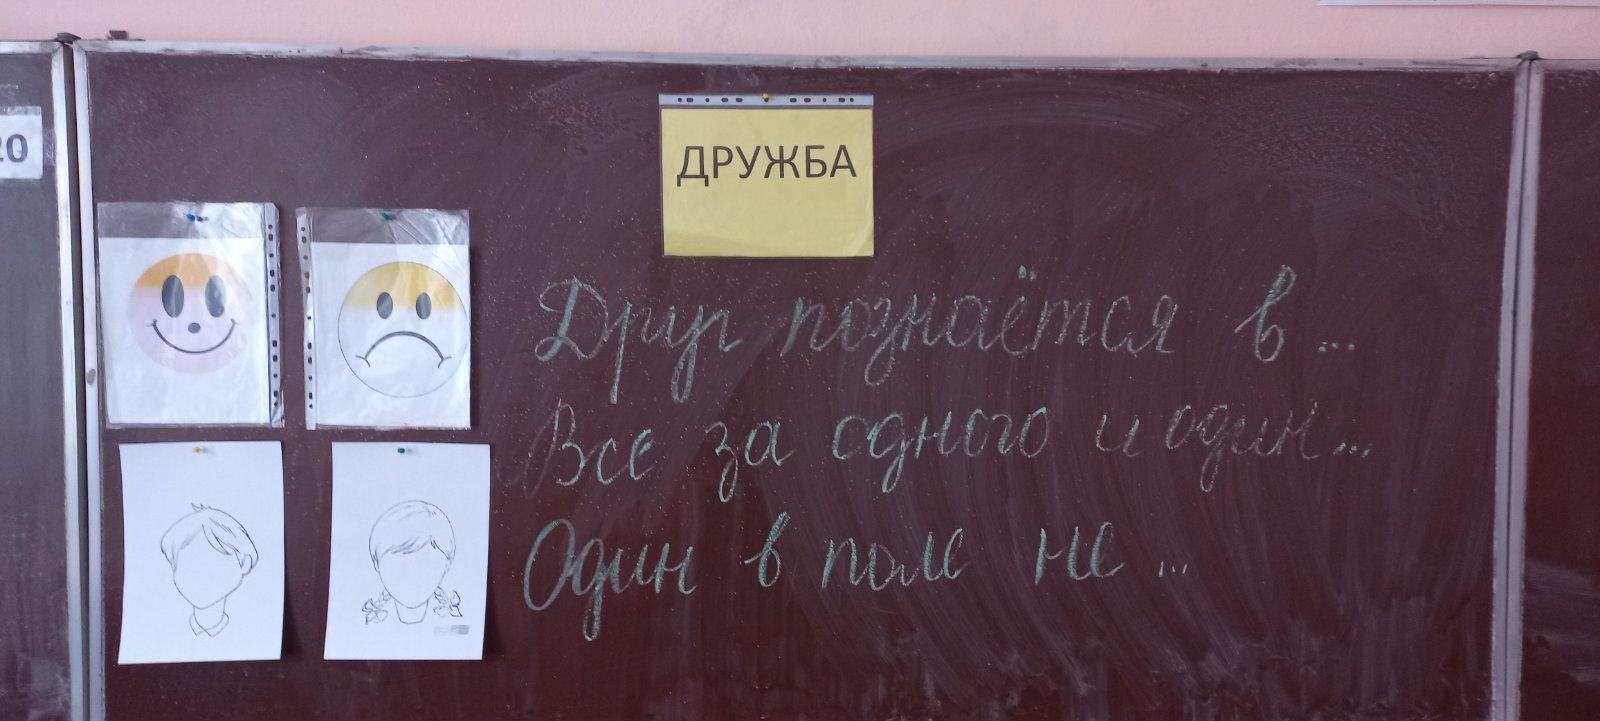 20
ДРУЖБА
Друг познаётся в ...
Все за одного и один...
Один в поле не ...